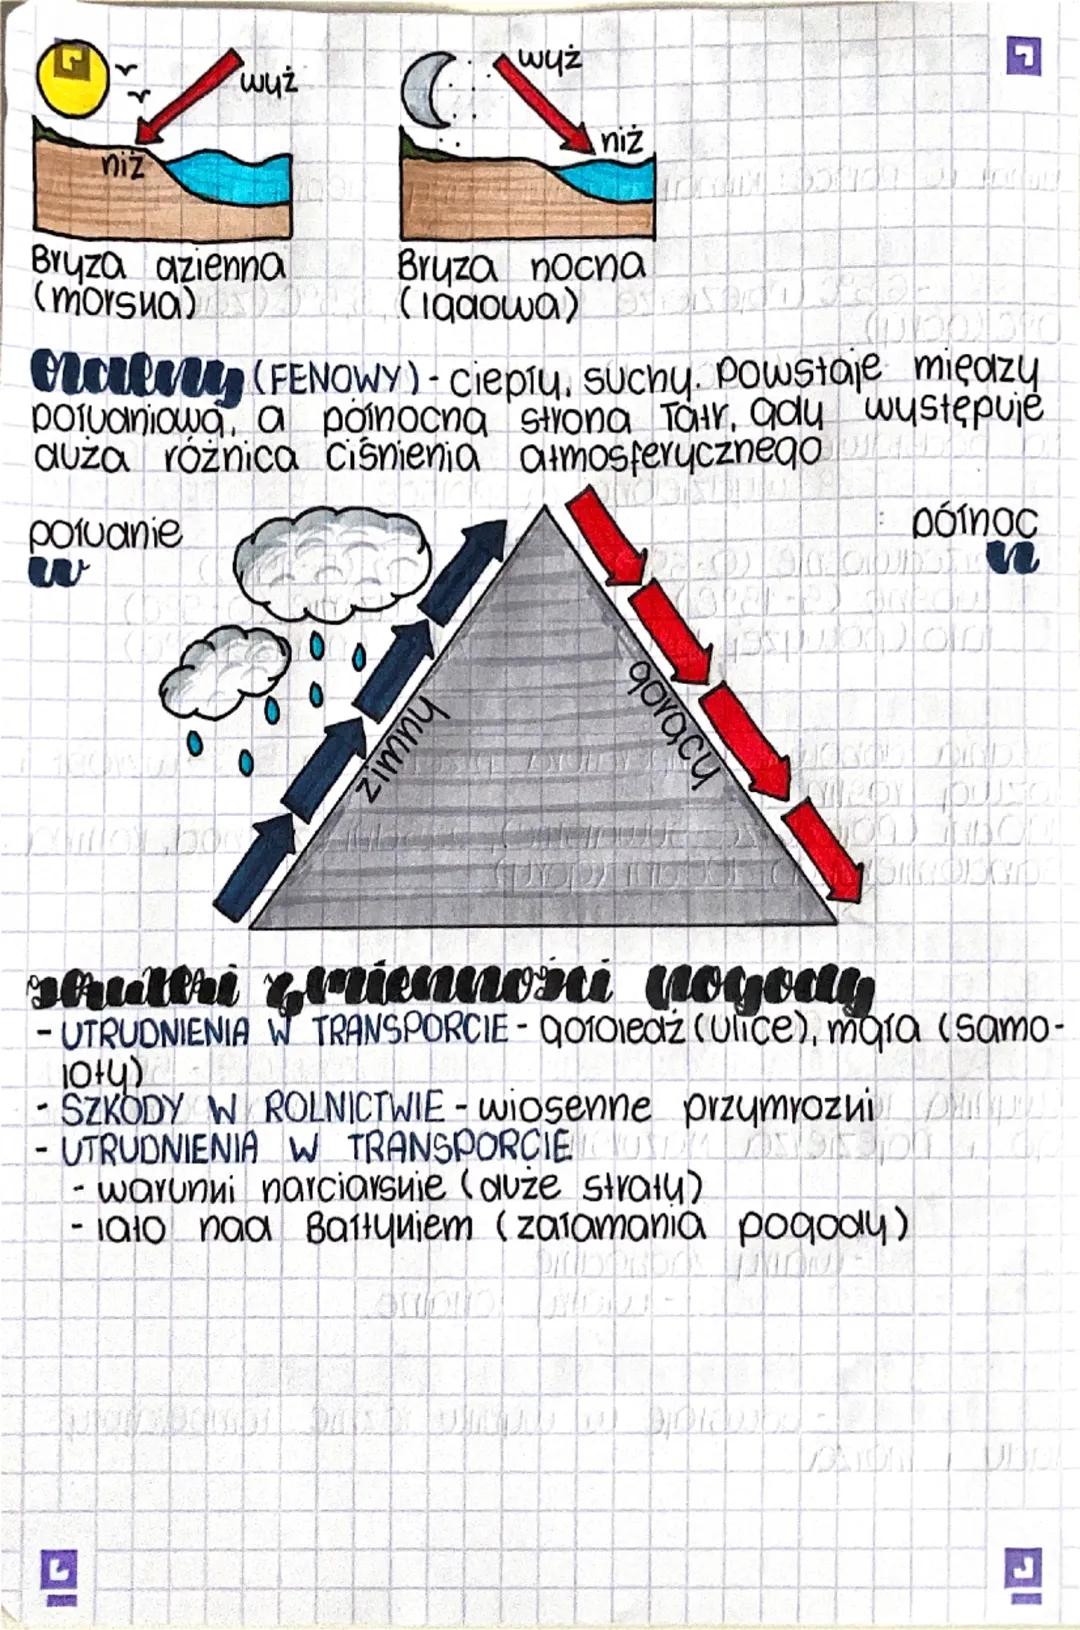 wyż
niż
Bryza dzienna
(morska)
wyż
niż
Bryza nocna
(lądowa)
Halny (FENOWY) - ciepły, suchy. Powstaje między
południową, a północną stroną Tatr, gdy występuje
duża różnica ciśnienia atmosferycznego
południe
północ
zimny
gorący
skutki zmienności pogody
- UTRUDNIENIA W TRANSPORCIE - gołoledź (ulice), mgła (samo-
loty)
- SZKODY W ROLNICTWIE - wiosenne przymrozki
- UTRUDNIENIA W TRANSPORCIE
- warunki narciarskie (duże straty)
- lato nad Bałtykiem (załamania pogody)